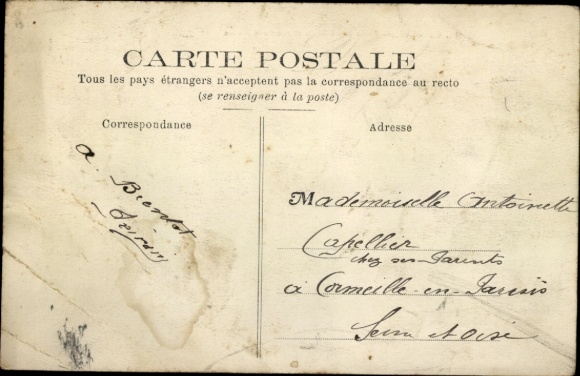 CARTE POSTALE
Tous les pays étrangers n'acceptent pas la correspondance au recto
(se renseigner à la poste)
Correspondance
Adresse
a Bientot
Mademoiselle Antoinette
Capellier
chez ses Parents
à Cormeille-en-Parisis
Seine et Oise